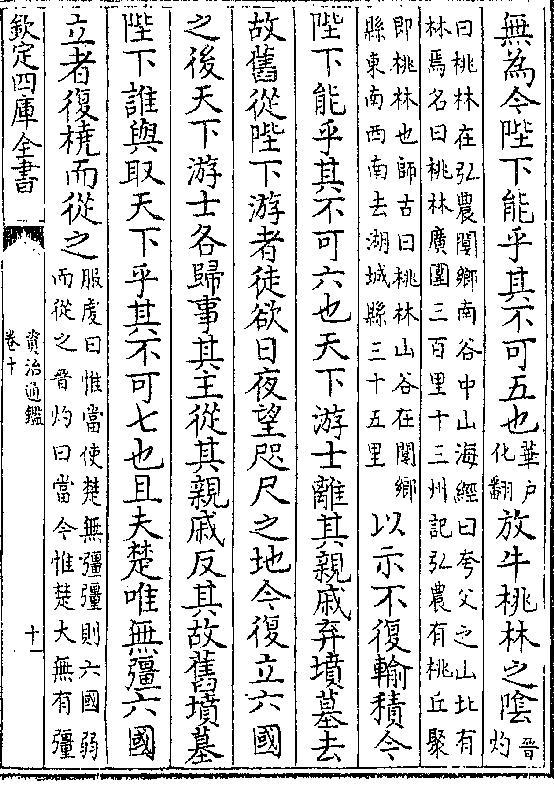 無為今陛下能乎其不可五也華戶化翻放牛桃林之隂晉灼
曰桃林在弘農閿鄉南谷中山海經曰夸父之山北有
林焉名曰桃林廣圍三百里十三州記弘農有桃丘聚
即桃林也師古曰桃林山谷在閿鄉
縣東南西南去湖城縣三十五里
以示不復輸積今
陛下能乎其不可六也天下游士離其親戚弃墳墓去
故舊從陛下游者徒欲日夜望咫尺之地今復立六國
之後天下游士各歸事其主從其親戚反其故舊墳墓
陛下誰與取天下乎其不可七也且夫楚唯無彊六國
立者復橈而從之
服虔曰惟當使楚無彊彊則六國弱
而從之晉灼曰當今惟楚大無有彊
欽定四庫全書
資治通鑑
卷十
十一